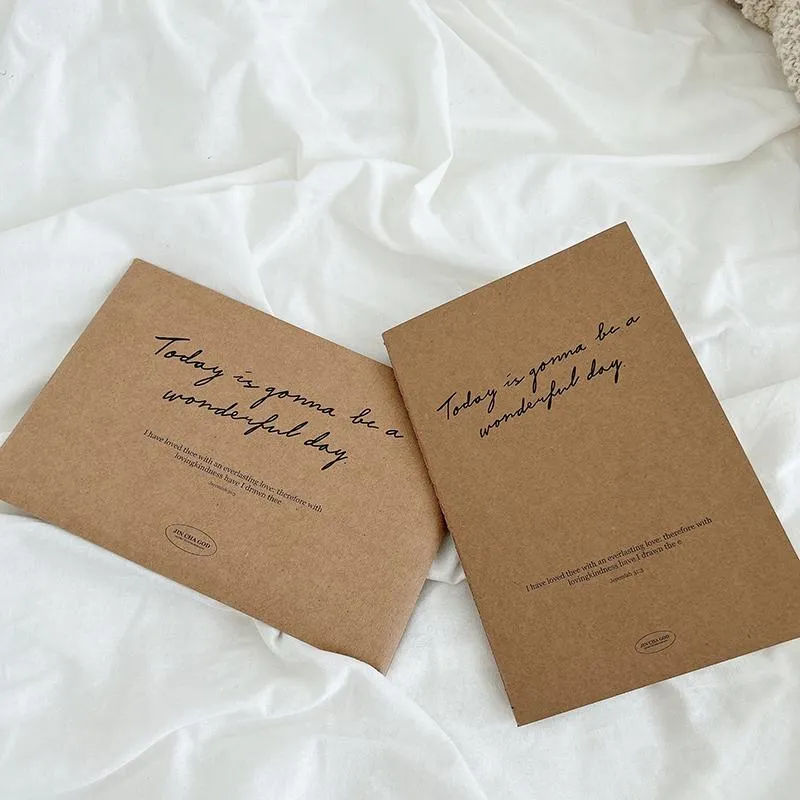 Today is gonna be a
wonderful day.
I have loved thee with an everlasting love: therefore with
lovingkindness have I drawn thee
Jeremiah 31:3
JIN CHA GOD
Today is gonna be a
wonderful day.
I have loved thee with an everlasting love: therefore with
lovingkindness have I drawn the e
Jeremiah 31:3
JIN CHA GOD